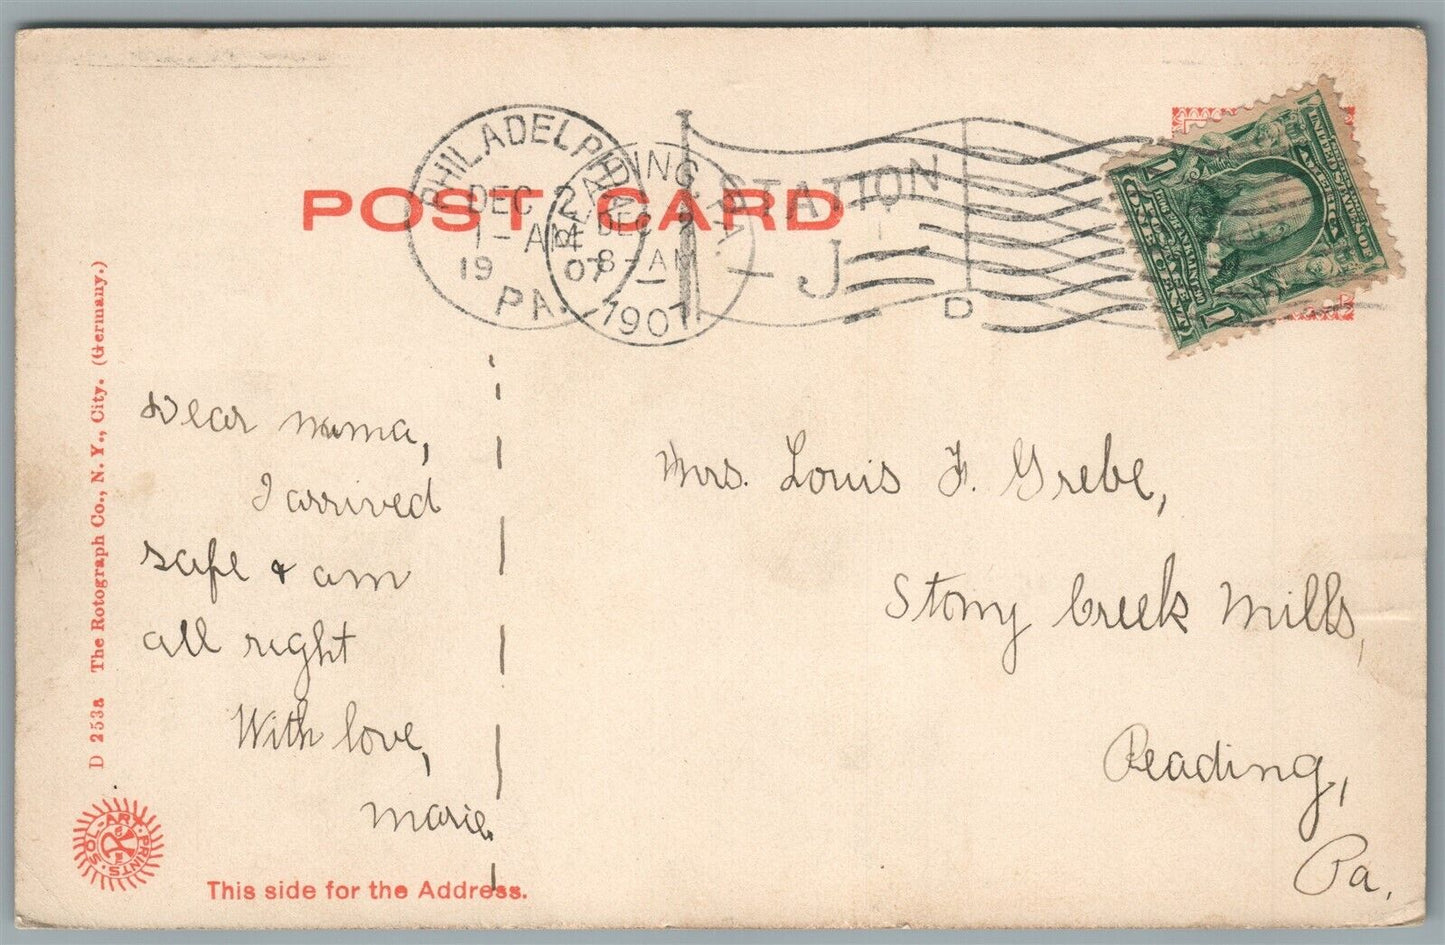 POST CARD
PHILADELPHIA
DEC 2
1 - AM
19 07
PA.
READING, PA.
DEC 2
8 - AM
1907
STATION
J
D
D 253a The Rotograph Co., N. Y., City. (Germany.)
Dear mama,
I arrived
safe & am
all right
With love,
Marie.
Mrs. Louis F. Grebe,
Stony Creek Mills,
Reading,
Pa.
SOL-ART PRINTS.
This side for the Address.